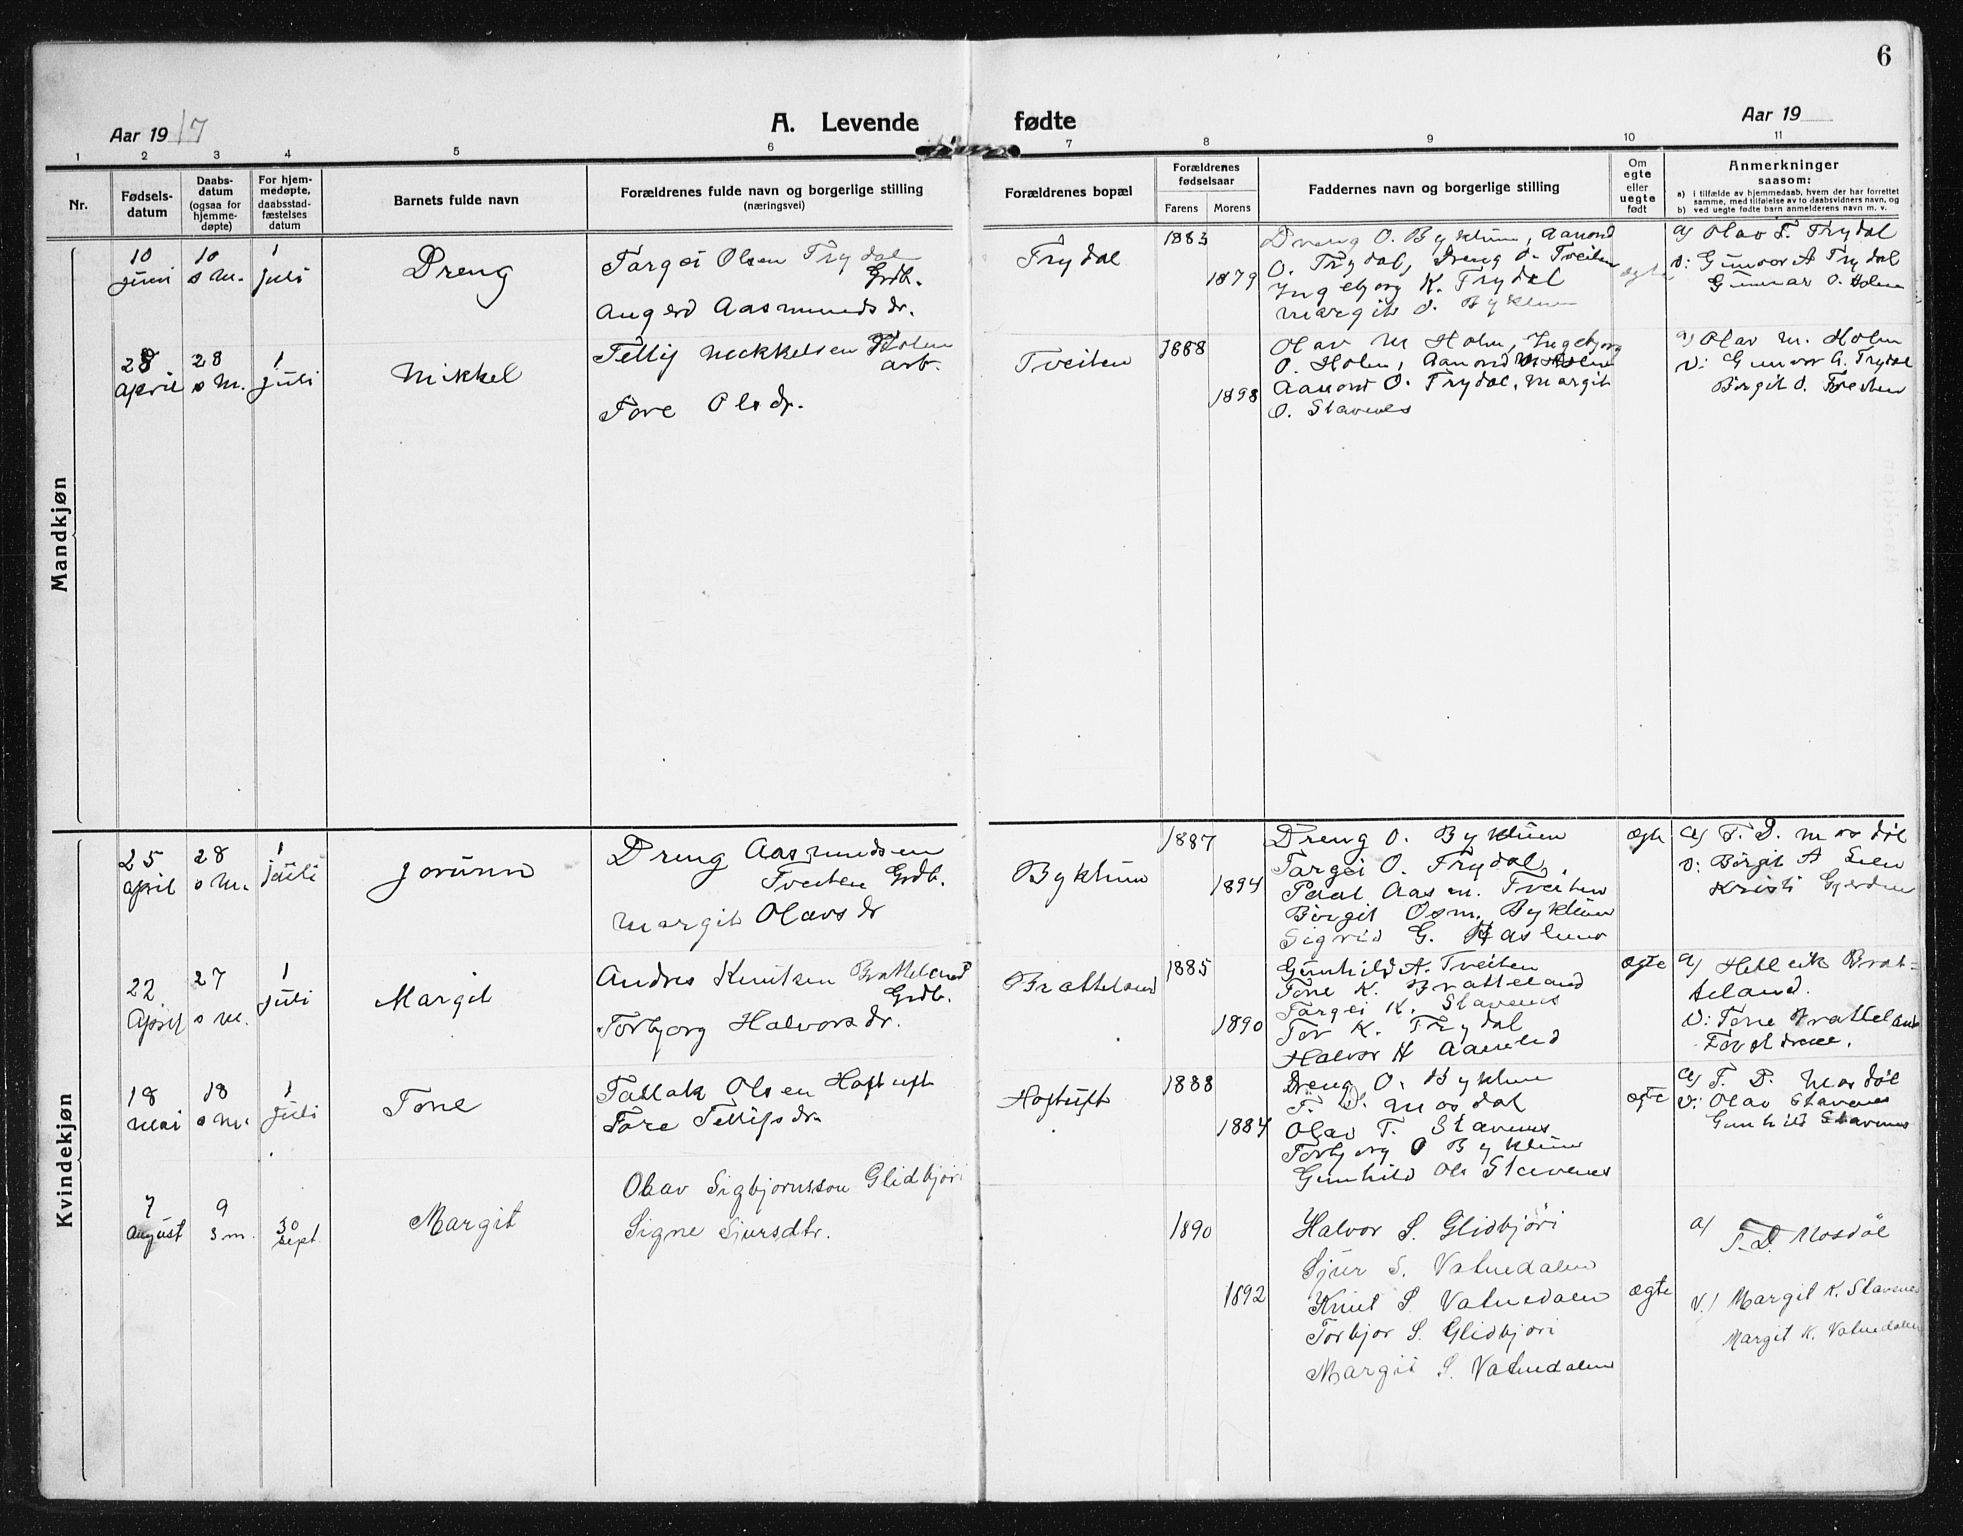 6
Aar 1917
A. Levende fødte
Aar 19
1 2 3 4 5 6 7 8 9 10 11
Nr.
Fødsels-
datum
Daabs-
datum
(ogsaa for
hjemme-
døpte)
For hjem-
medøpte,
daabsstad-
fæstelses
datum
Barnets fulde navn
Forældrenes fulde navn og borgerlige stilling
(næringsvei)
Forældrenes bopæl
Forældrenes
fødselsaar
Farens Morens
Faddernes navn og borgerlige stilling
Om
egte
eller
uegte
født
Anmerkninger
saasom:
a) i tilfælde av hjemmedaab, hvem der har forrettet
samme, med tilføielse av to daabsvidners navn, og
b) ved uegte fødte barn anmelderens navn m. v.
Mandkjøn
10
juni
10
s m.
1
juli
Dreng
Targei Olsen Trydal
Grdb.
Angerd Aasmundsdr.
Trydal
1883
1879
Dreng O. Byklum, Aanond
O. Trydal, Dreng O. Tveiten
Ingebjorg K. Trydal
Margit O. Byklum
ægte
a) Olav T. Trydal
v: Gunvor A Trydal
Gunnar O. Holen
28
April
28
s m.
1
juli
Mikkel
Tellif Mikkelsen Holen
arb.
Tore Olsdr.
Tveiten
1888
1898
Olav M Holen, Ingebjorg
O. Holen, Aanond M Holen
Aanond O. Trydal, Margit
O. Stavenes
a) Olav M. Holen
v: Gunvor A. Trydal
Birgit O. Tveiten
Kvindekjøn
25
April
28
s m.
1
juli
Jorunn
Dreng Aasmundsen
Tveiten Grdb.
Margit Olavsdr
Byklum
1887
1894
Dreng O. Byklum
Targei O. Trydal,
Paal Aasm. Tveiten
Birgit Osm. Byklum
Sigrid G.
ægte
a) T. D. Mosdøl
v: Birgit A Lien
Kristi Gjerden
22
April
27
s m.
1
juli
Margit
Andres Knutsen Bratteland
Grdb.
Torbjorg Halvorsdr.
Bratteland
1885
1890
Gunhild A. Tveiten
Tone K. Bratteland
Targei K. Stavenes
Tor K. Trydal
Halvor H
ægte
a) Helleik Brat-
teland.
v: Tone Bratteland
18
mai
18
s m.
1
juli
Tone
Tallak Olsen Hoftuft
Tore Tellifsdr.
Hoftuft
1888
1884
Dreng O. Byklum
T. D. Mosdal
Olav T. Stavenes
Torbjorg O Byklum
Gunhild Ols Stavenes
ægte
a) T. D. Mosdøl
v: Olav Stavenes
Gunhild Stavenes
7
August
9
s m.
30
sept.
Margit
Olav Sigbjornsson Glidbjori
Signe Sjursdtr.
1890
1892
Halvor S. Glidbjöri
Sjur S. Vatnedalen
Knut S. Vatnedalen
Torbjor S. Glidbjori
Margit S. Vatnedalen
ægte
a) T. D. Mosdöl
v.) Margit K. Stavenes
Margit K. Vatnedalen